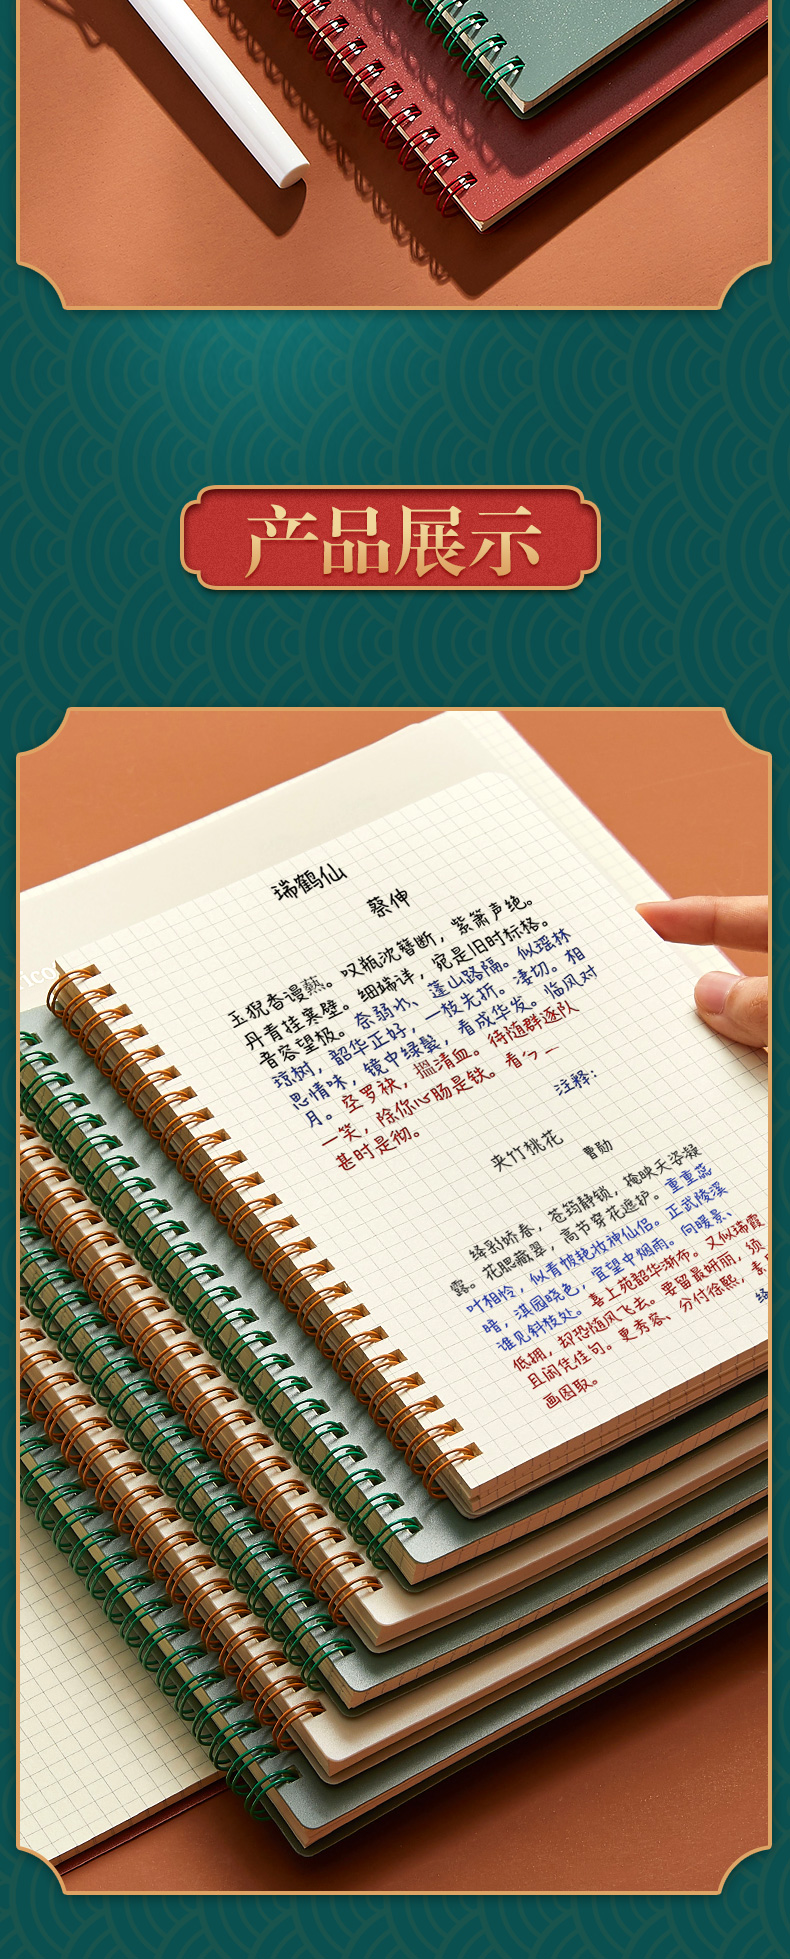 产品展示
rico
瑞鹤仙
蔡伸
玉猊香谩爇。叹瓶沈簪断，紫箫声绝。
丹青挂寒壁。细端详，宛是旧时标格。
音容望极。奈弱水、蓬山路隔。似瑶林
琼树，韶华正好，一枝先折。凄切。相
思情味，镜中绿鬓，看成华发。临风对
月。空罗袂，揾清血。待随群逐队
一笑，除你心肠是铁。看
甚时是彻。
注释：
夹竹桃花
曹勋
绛彩娇春，苍筠静锁，掩映夭姿凝
露。花腮藏翠，高节穿花遮护。重重蕊
叶相怜，似青帔艳妆神仙侣。正武陵溪
暗，淇园晓色，宜望中烟雨。向暖景、
谁见斜枝处。喜上苑韶华渐布。又似瑞霞
低拥，却恐随风飞去。要留最妍丽，须
且闲凭佳句。更秀容、分付徐熙，素
画图取。